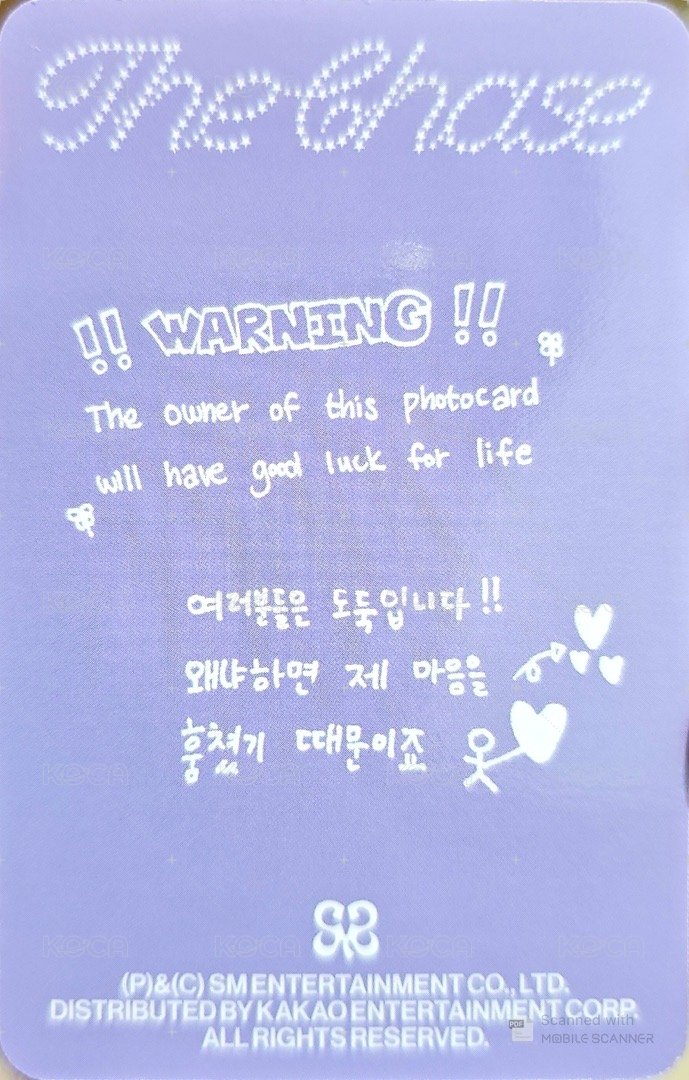 The Chase
!! WARNING !!
The owner of this photocard
will have good luck for life
여러분들은 도둑입니다!!
왜냐하면 제 마음을
훔쳤기 때문이죠
(P)&(C) SM ENTERTAINMENT CO., LTD.
DISTRIBUTED BY KAKAO ENTERTAINMENT CORP.
ALL RIGHTS RESERVED.
PDF Scanned with
MOBILE SCANNER
KOCA KOCA KOCA KOCA
KOCA KOCA KOCA KOCA
KOCA KOCA KOCA KOCA